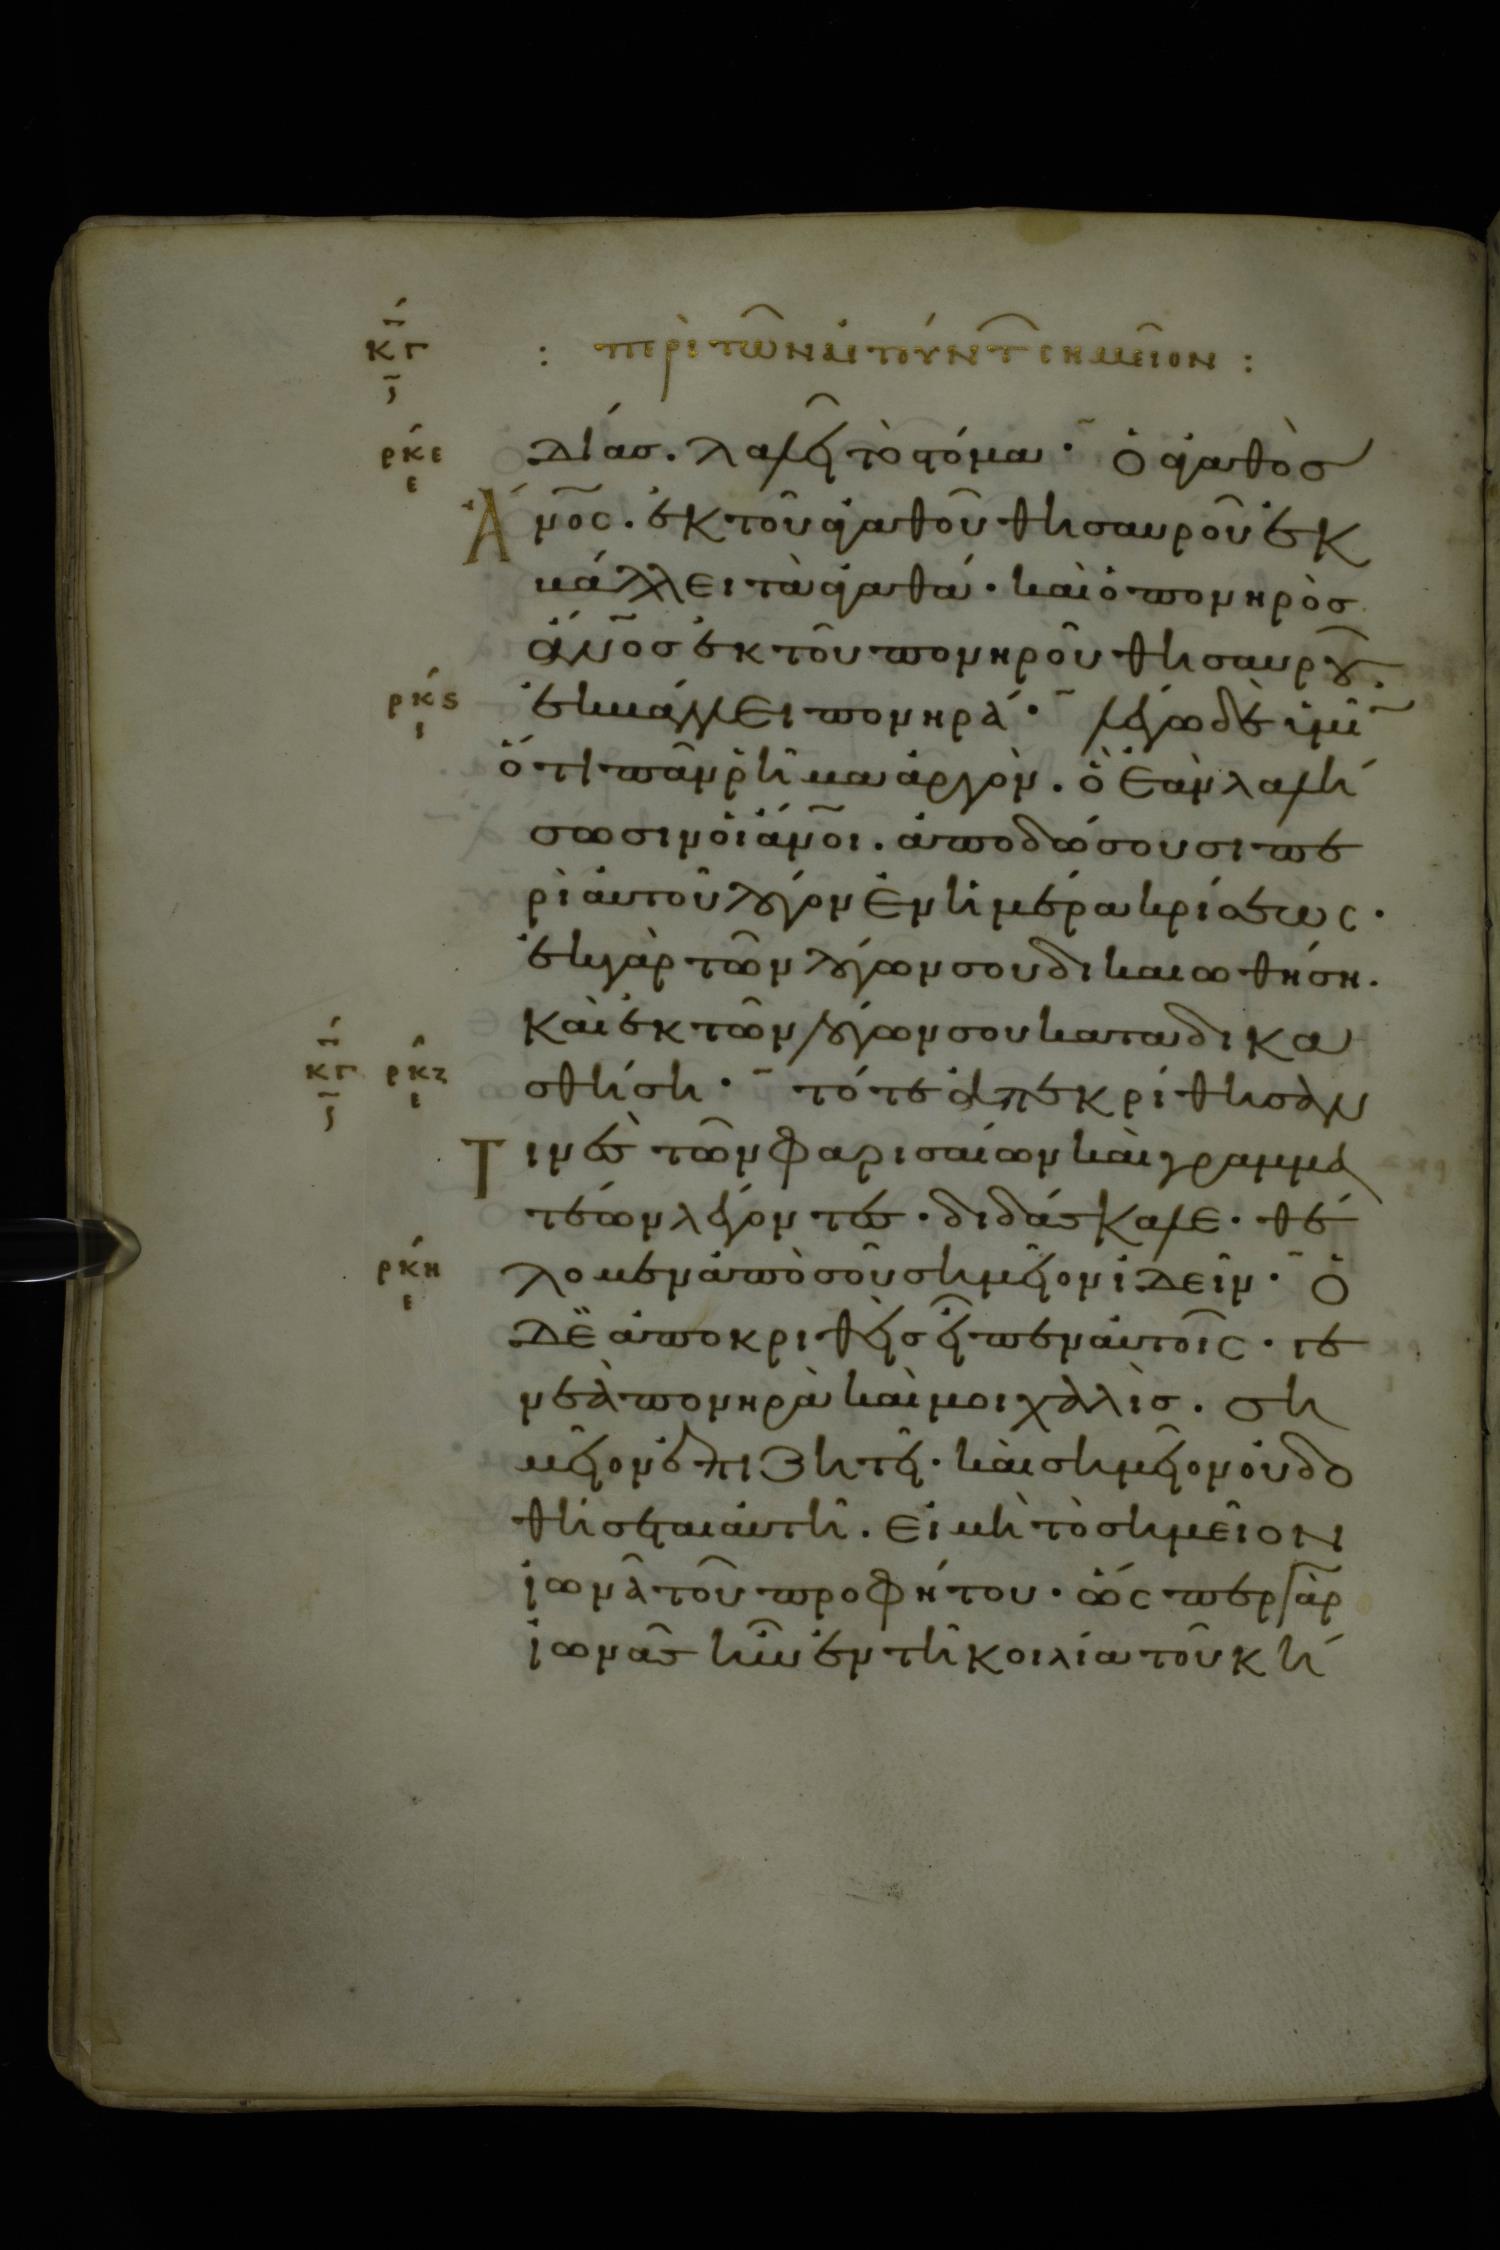 κγ
: περὶ τῶν αἰτούντ σημεῖον :
ρκε
ε
δίας. λαλεῖ τὸ στόμα · ὁ ἀγαθὸσ
ἄνος. ἐκ τοῦ ἀγαθοῦ θησαυροῦ ἐκ
βάλλει τὰ ἀγαθά · καὶ ὁ πονηρὸσ
ἄνοσ ἐκ τοῦ πονηροῦ θησαυροῦ
ρκς
ι
ἐκβάλλει πονηρά · λέγω δὲ ὑμῖ
ὅτι πᾶν ῥῆμα ἀργὸν. ὃ ἐὰν λαλή
σωσιν οἱ ἄνοι. ἀποδώσουσι πε
ρὶ αὐτοῦ λόγον ἐν ἡμέρα κρίσεως ·
ἐκ γὰρ τῶν λόγων σου δικαιωθήση.
καὶ ἐκ τῶν λόγων σου καταδικα
κγ ρκζ
ε
σθήση · τότε ἀπεκρίθησάν
τινεσ τῶν φαρισαίων καὶ γραμμα
τέων λέγοντεσ · διδάσκαλε · θέ
ρκη
ε
λομεν ἀπὸ σοῦ σημεῖον ἰδεῖν · ὁ
δὲ ἀποκριθεὶσ εἶπεν αὐτοῖς · γε
νεὰ πονηρὰ καὶ μοιχαλὶσ. ση
μεῖον ἐπιζητεῖ · καὶ σημεῖον οὐ δο
θήσεται αὐτῆ. εἰ μὴ τὸ σημεῖον
ἰωνᾶ τοῦ προφήτου · ὥςπερ γὰρ
ἰωνᾶσ ἦν ἐν τῆ κοιλία τοῦ κή